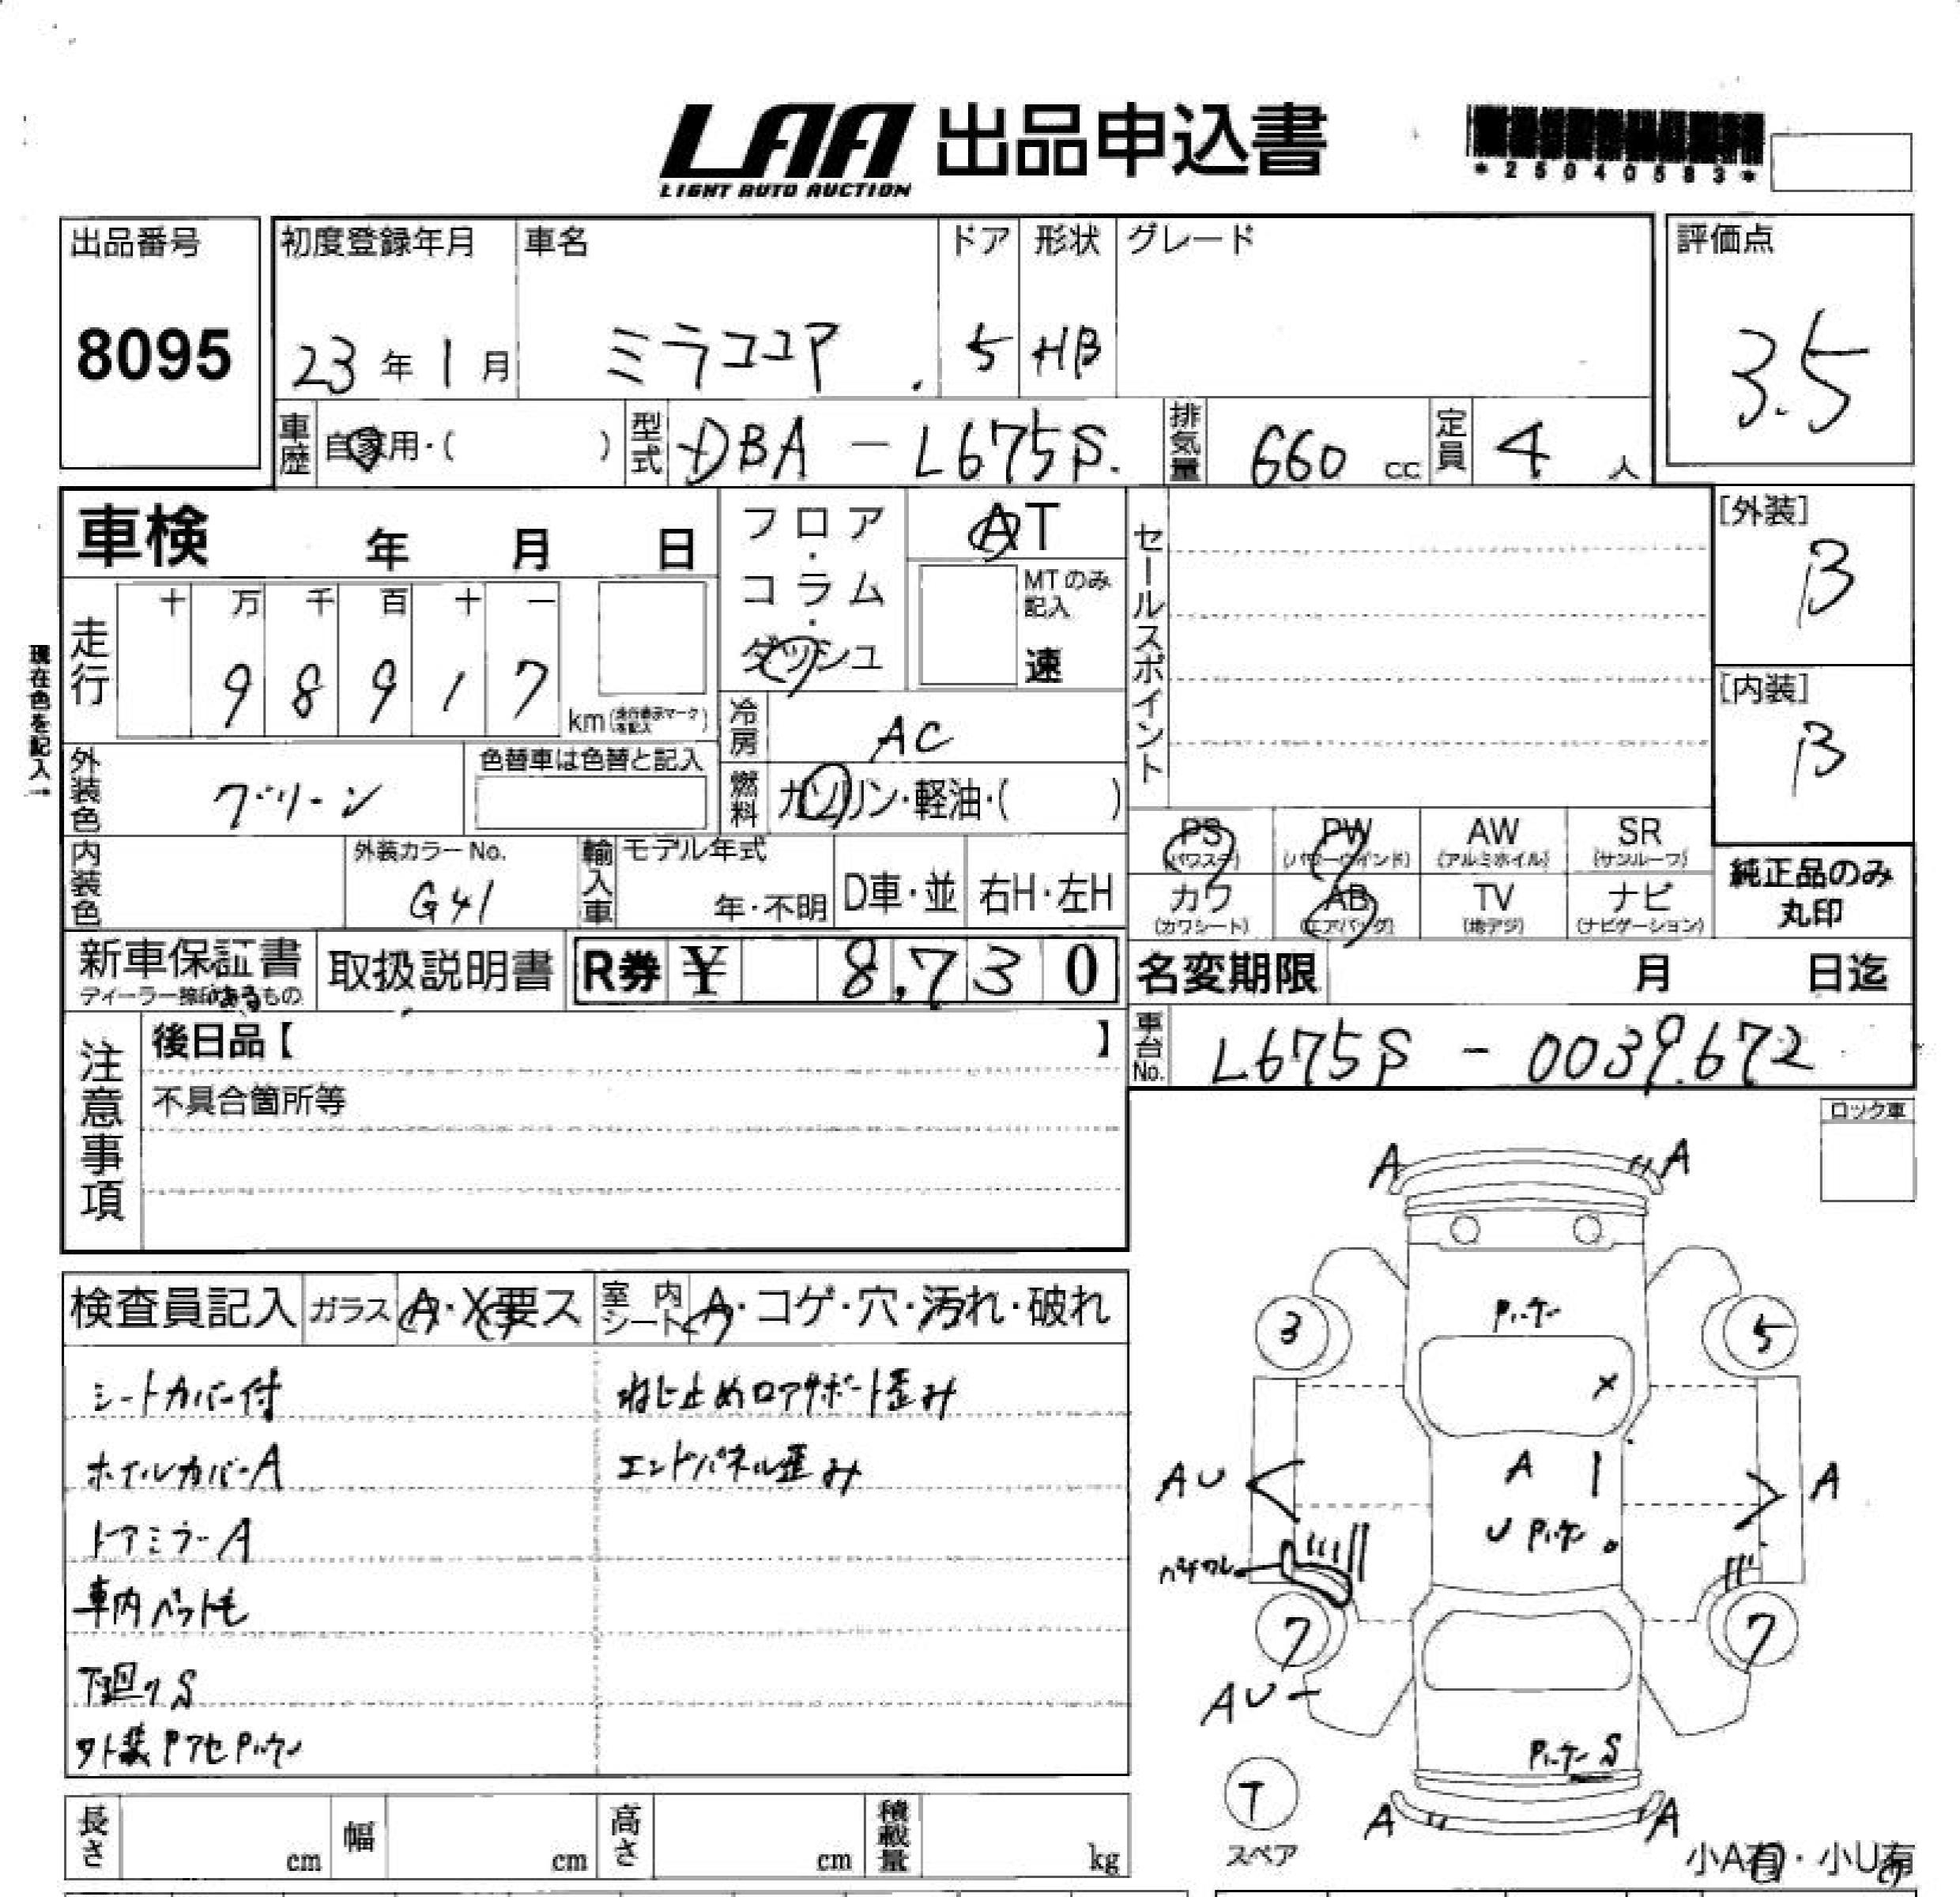 LAA 出品申込書
LIGHT AUTO AUCTION
*25040583*
出品番号 初度登録年月 車名 ドア 形状 グレード 評価点
8095 23年1月 ミラココア 5 HB 3.5
車歴 自家用・( ) 型式 DBA-L675S 排気量 660 cc 定員 4 人
車検 年 月 日
フロア・コラム・ダッシュ
AT
MTのみ記入
速
セールスポイント
[外装]
B
[内装]
B
現在色を記入→
走行 十 万 千 百 十 一
9 8 9 1 7 km
冷房 AC
外装色 グリーン 色替車は色替と記入
燃料 ガソリン・軽油・( )
内装色 外装カラーNo. G41
輸入車 モデル年式 年・不明 D車・並 右H・左H
PS (パワステ) PW (パワーウインド) AW (アルミホイル) SR (サンルーフ)
カワ (カワシート) AB (エアバッグ) TV (地デジ) ナビ (ナビゲーション)
純正品のみ
丸印
新車保証書 取扱説明書 R券 ¥ 8,730
名変期限 月 日迄
車台No. L675S-0039672
注意事項
後日品【 】
不具合箇所等
ロック車
検査員記入 ガラス A・X・要ス 室内シート A・コゲ・穴・汚れ・破れ
シートカバー付 ねじ止めロアサポート歪み
ホイルカバーA エンドパネル歪み
ドアミラーA
車内ペット毛
下廻りS
外装
A A
3 5
X
AU A I A
U
7 7
AU
S
T
スペア
A A
小A有・小U有
長さ cm 幅 cm 高さ cm 積載量 kg